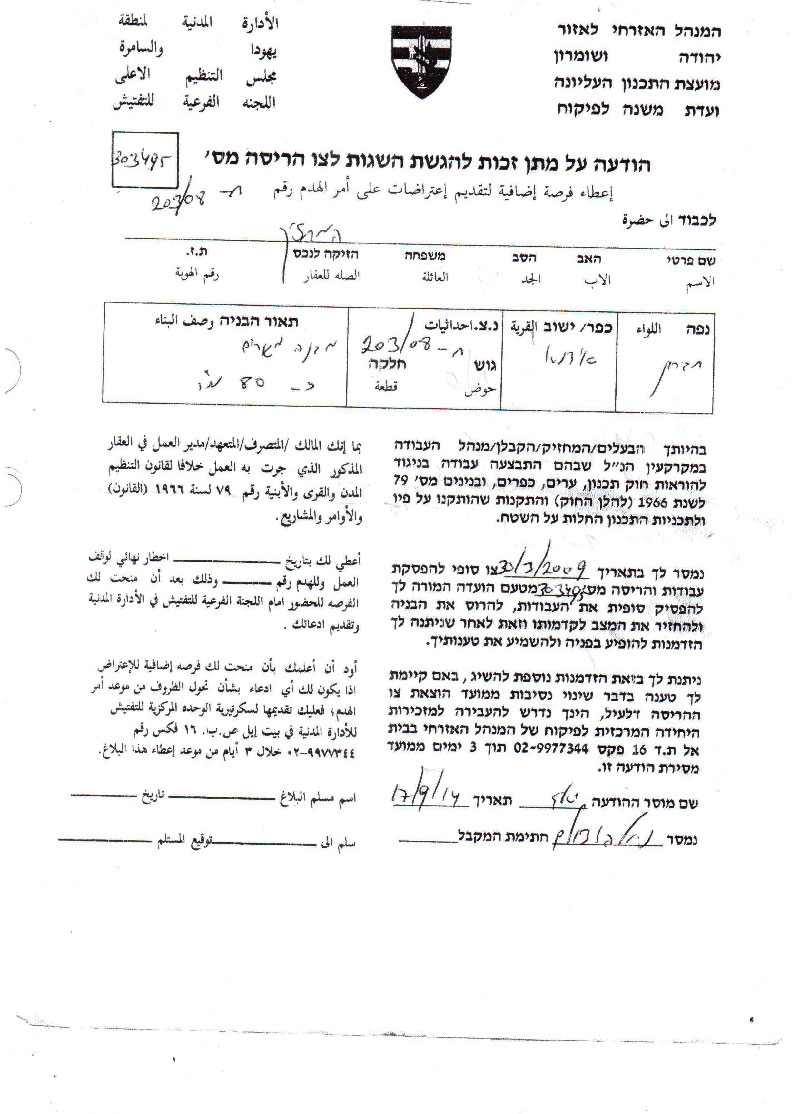 המנהל האזרחי לאזור
יהודה ושומרון
מועצת התכנון העליונה
ועדת משנה לפיקוח
الأدارة المدنية لمنطقة
يهودا والسامرة
مجلس التنظيم الاعلى
اللجنه الفرعية للتفتيش
הודעה על מתן זכות להגשת השגות לצו הריסה מס׳
303495
إعطاء فرصة إضافية لتقديم إعتراضات على أمر الهدم رقم ח- 203/08
לכבוד الى حضرة
המחזיק
שם פרטי האב הסב משפחה הזיקה לנכס ת.ז.
الاسم الاب الجد العائلة الصله للعقار رقم الهوية
נפה اللواء כפר/ ישוב القرية נ.צ. احداثيات תאור הבניה وصف البناء
חברון אידנא ח- 203/08 מבנה מגורים
גוש חלקה
حوض قطعة
כ- 80 מ"ר
בהיותך הבעלים/המחזיק/הקבלן/מנהל העבודה
במקרקעין הנ"ל שבהם התבצעה עבודה בניגוד
להוראות חוק תכנון, ערים, כפרים, ובנינים מס׳ 79
לשנת 1966 (להלן החוק) והתקנות שהותקנו על פיו
ולתכניות התכנון החלות על השטח.
נמסר לך בתאריך 30/3/2009 צו סופי להפסקת
עבודות והריסה מס׳ 303495 מטעם הועדה המורה לך
להפסיק סופית את העבודות, להרוס את הבניה
ולהחזיר את המצב לקדמותו וזאת לאחר שניתנה לך
הזדמנות להופיע בפניה ולהשמיע את טענותיך.
ניתנת לך בזאת הזדמנות נוספת להשיג, באם קיימת
לך טענה בדבר שינוי נסיבות ממועד הוצאת צו
ההריסה דלעיל, הינך נדרש להעבירה למזכירות
היחידה המרכזית לפיקוח של המנהל האזרחי בבית
אל ת.ד 16 פקס 02-9977344 תוך 3 ימים ממועד
מסירת הודעה זו.
שם מוסר ההודעה תאריך 17/9/14
נמסר חתימת המקבל
بما إنك المالك /المتصرف/المتعهد/مدير العمل في العقار
المذكور الذي جرت به العمل خلافا لقانون التنظيم
المدن والقرى والأبنية رقم ٧٩ لسنة ١٩٦٦ (القانون)
والأوامر والمشاريع.
أعطي لك بتاريخ اخطار نهائي لوقف
العمل وللهدم رقم وذلك بعد أن منحت لك
الفرصه للحضور امام اللجنة الفرعية للتفتيش في الأدارة المدنية
وتقديم ادعائك .
أود أن أعلمك بأن منحت لك فرصه إضافية للإعتراض
اذا يكون لك أي ادعاء بشأن تحول الظروف من موعد أمر
الهدم؛ فعليك تقديمها لسكرتيرية الوحده المركزية للتفتيش
للأدارة المدنية في بيت إيل ص.ب. ١٦ فكس رقم
٠٢-٩٩٧٧٣٤٤ خلال ٣ أيام من موعد إعطاء هذا البلاغ.
اسم مسلم البلاغ تاريخ
سلم الى توقيع المستلم